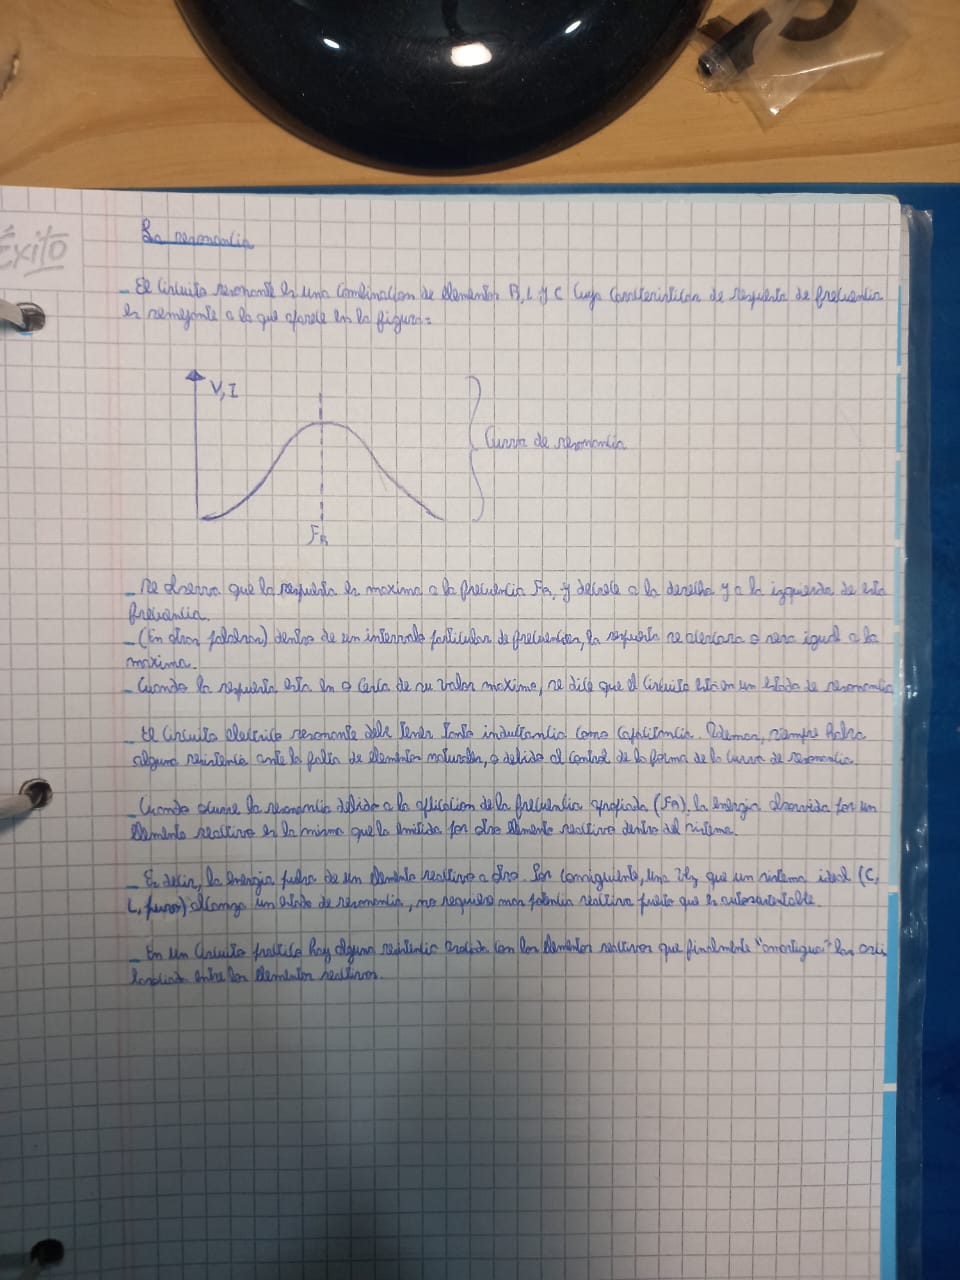 Éxito
La resonancia
_ El circuito resonante es una combinacion de elementos R, L y C cuya caracteristica de respuesta de frecuencia
es semejante a la que aparece en la figura:
V, I
Curva de resonancia
FR
_ Se observa que la respuesta es maxima a la frecuencia FR, y decrece a la derecha y a la izquierda de esta
frecuencia.
_ (En otras palabras) dentro de un intervalo particular de frecuencias, la respuesta se acercara o sera igual a la
maxima.
_ Cuando la respuesta esta en o cerca de su valor maximo, se dice que el circuito esta en un estado de resonancia
_ El circuito electrico resonante debe tener tanto inductancia como capacitancia. Ademas, siempre habra
alguna resistencia ante la falta de elementos naturales, o debido al control de la forma de la curva de resonancia.
_ Cuando ocurre la resonancia debido a la aplicacion de la frecuencia apropiada (FR), la energia absorvida por un
elemento reactivo es la misma que la emitida por otro elemento reactivo dentro del sistema.
_ Es decir, la energia pulsa de un elemento reactivo a otro. Por consiguiente, una vez que un sistema ideal (C,
L, puros) alcanza un estado de resonancia, no requiere mas potencia reactiva puesto que es autosustentable.
_ En un circuito practico hay alguna resistencia con los elementos reactivos que finalmente "amortigua" las osci
entre los elementos reactivos.